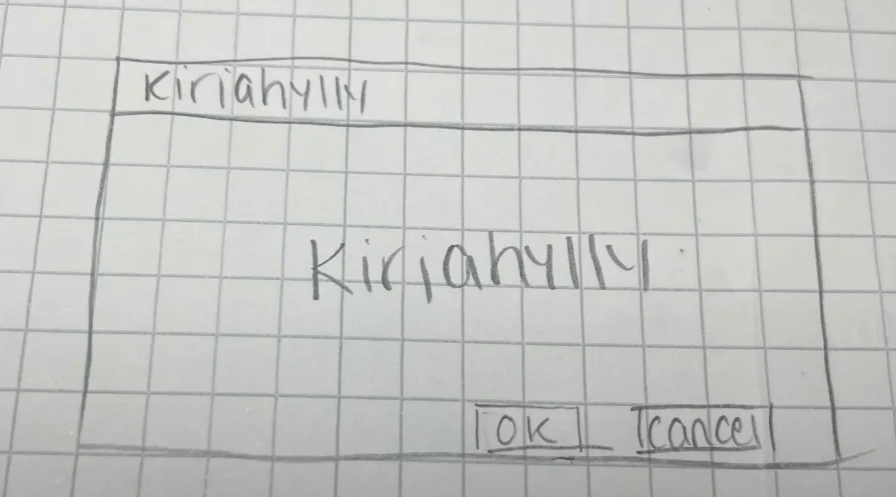 Kirjahylly
Kirjahylly
OK Cancel